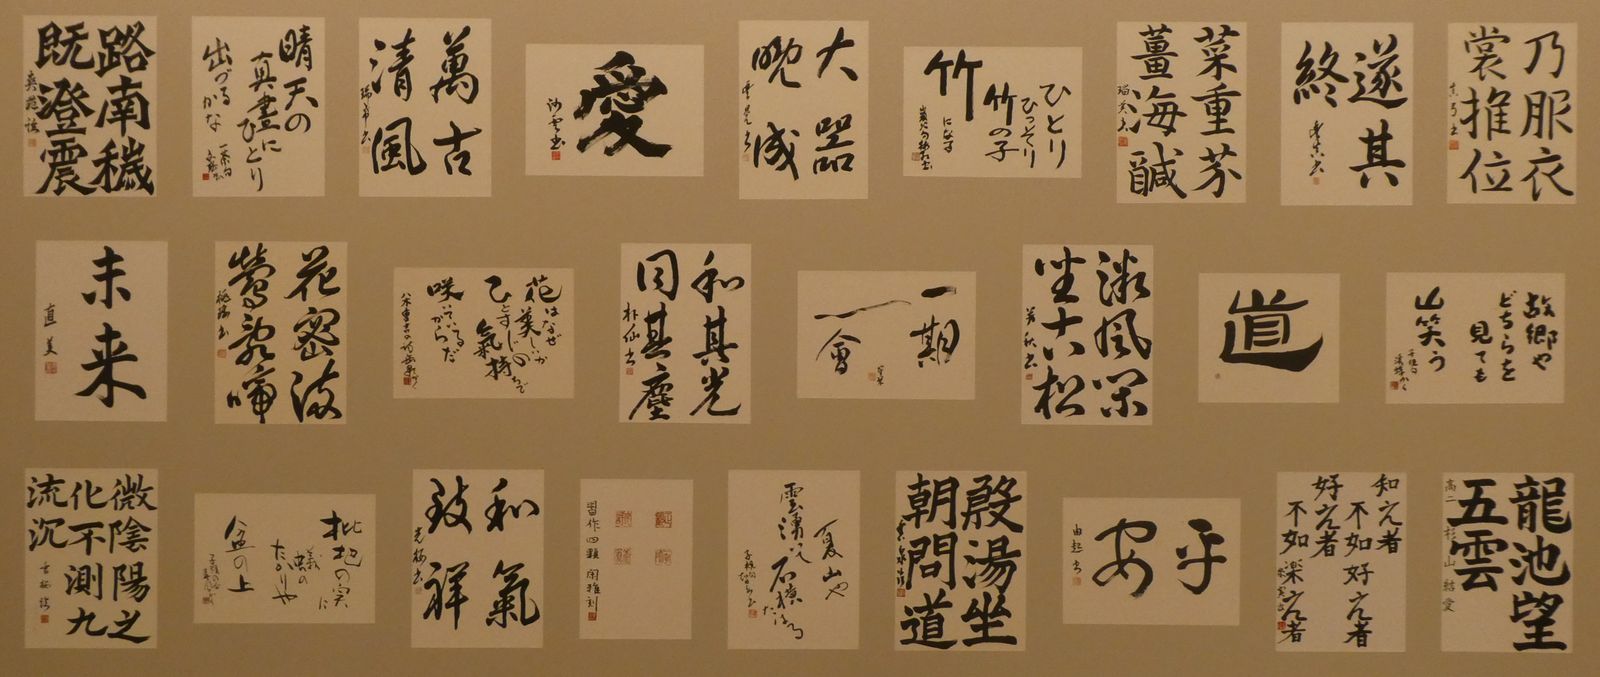 路南穢
既澄震
晴天の
真昼にひとり
出づるかな
萬古
清風
愛
大器
晩成
ひとり
ひっそり
竹の子
竹
になる
菜重芥
薑海鹹
遂其
終
乃服衣
裳推位
未来
直美
花密
鶯
啼
花はなぜ
美しいか
ひとすじの
氣持ちで
咲いている
からだ
和其光
同其塵
一期
一會
微風
坐古松
道
故郷や
どちらを
見ても
山笑う
微陰陽之
化不測九
流沉
枇杷の実に
蟻の
たかりや
盆の上
和氣
致祥
習作四顆
夏山や
雲湧いて
石横たはる
殷湯坐
朝問道
平
安
由起書
知之者
不如好之者
好之者
不如楽之者
龍池望
五雲
高二 杉山 結愛